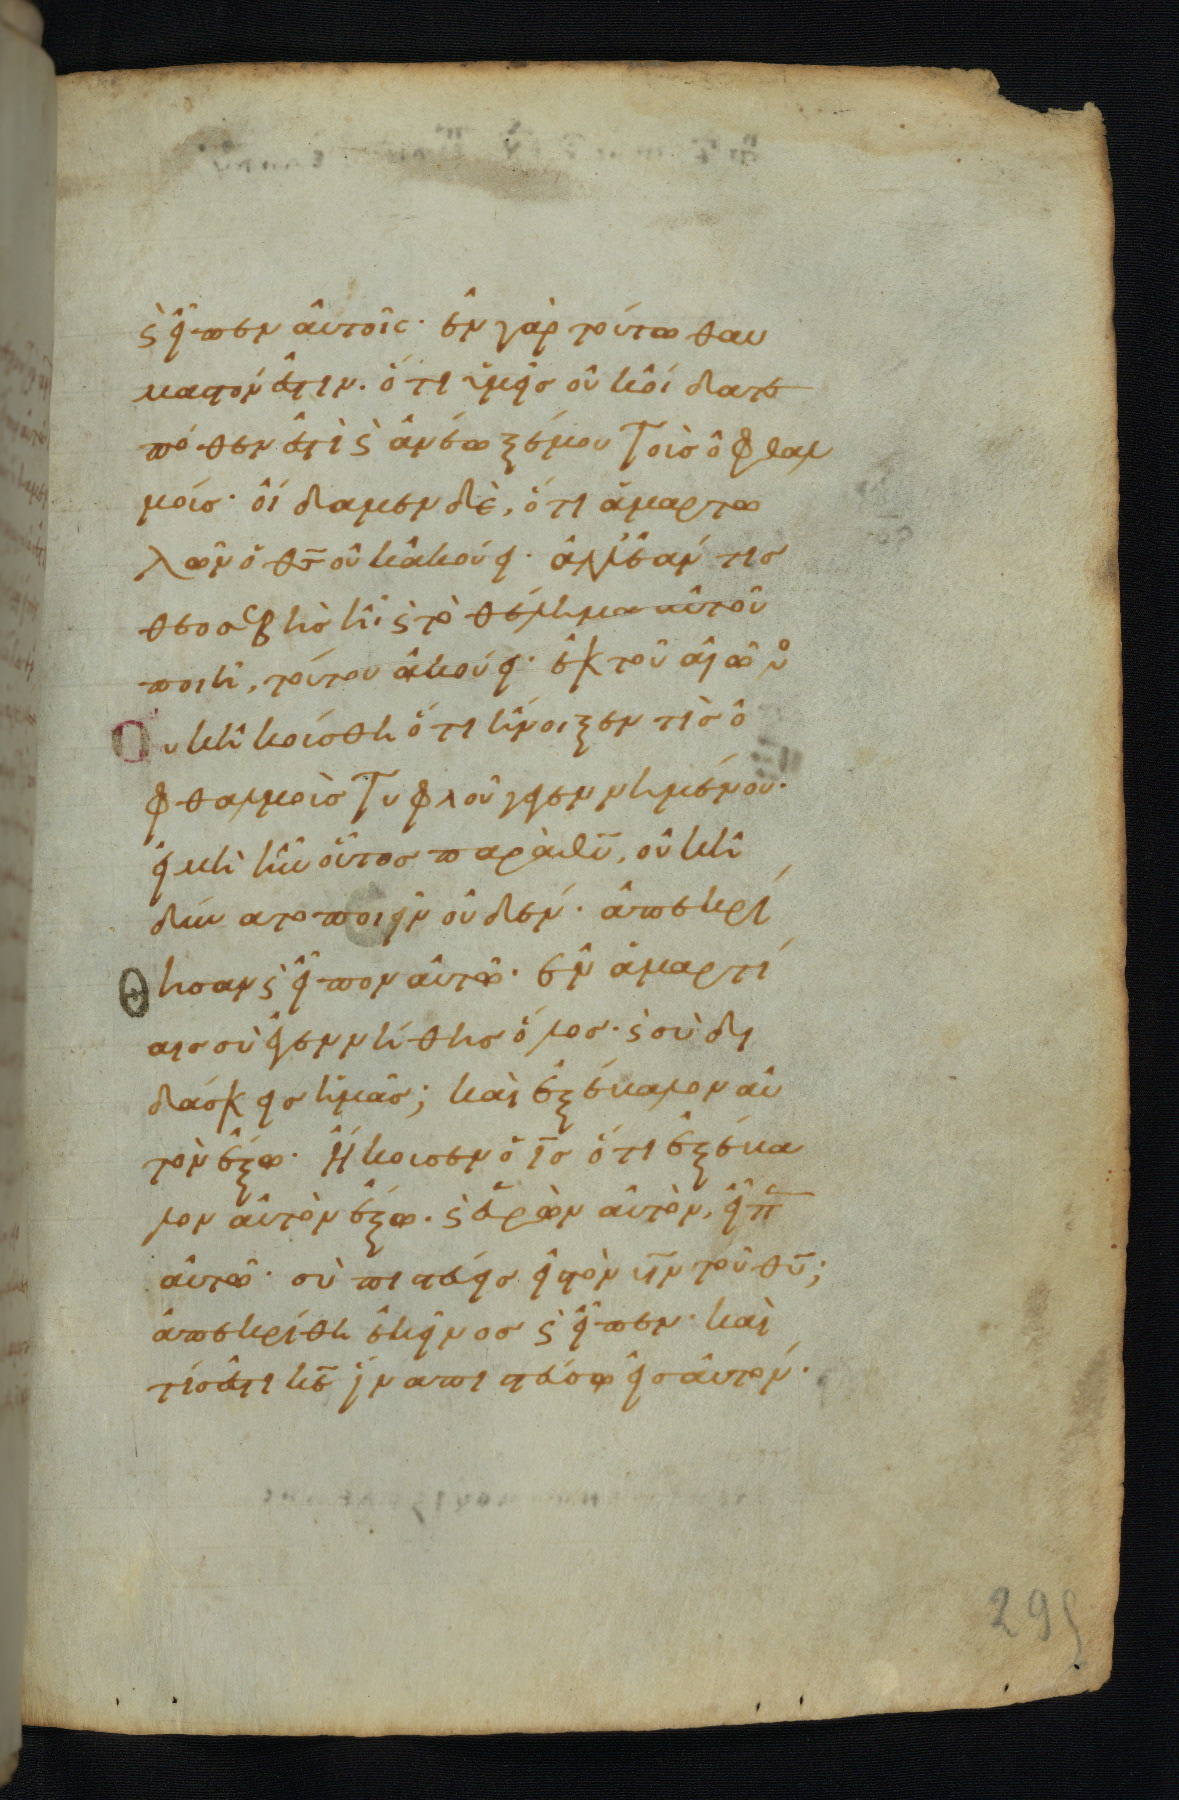 ς εἶπεν αὐτοῖς· ἐν γὰρ τούτω θαυ
μαστόν ἐστιν. ὅτι ὑμεῖς οὐκ οἴδατε
πόθεν ἐστὶ ς ἀνέωξέ μου τοὺς ὀφθαλ
μούς· οἴδαμεν δὲ, ὅτι ἁμαρτω
λῶν ὁ θς οὐκ ἀκούει· ἀλλ' ἐάν τις
θεοσεβὴς ἦ ς τὸ θέλημα αὐτοῦ
ποιῆ, τούτου ἀκούει· ἐκ τοῦ αἰῶ
Οὐκ ἠκούσθη ὅτι ἤνοιξεν τὶς ὀ
φθαλμοὺς τυφλοῦ γεγεννημένου·
εἰ μὴ ἦν οὗτος παρὰ θυ, οὐκ ἠ
δύνατο ποιεῖν οὐδέν· ἀπεκρί
θησαν ς εἶπον αὐτῶ· ἐν ἁμαρτί
αις σὺ ἐγεννήθης ὅλος· ς σὺ δι
δάσκεις ἡμᾶς; καὶ ἐξέβαλον αὐ
τὸν ἔξω· Ἤκουσεν ὁ ις ὅτι ἐξέβα
λον αὐτὸν ἔξω. ς εὑρὼν αὐτὸν, εἶπ
αὐτῶ· σὺ πιστεύεις εἰς τὸν υν τοῦ θυ;
ἀπεκρίθη ἐκεῖνος ς εἶπεν· καὶ
τίς ἐστι κε ἵνα πιστεύσω εἰς αὐτόν·
295